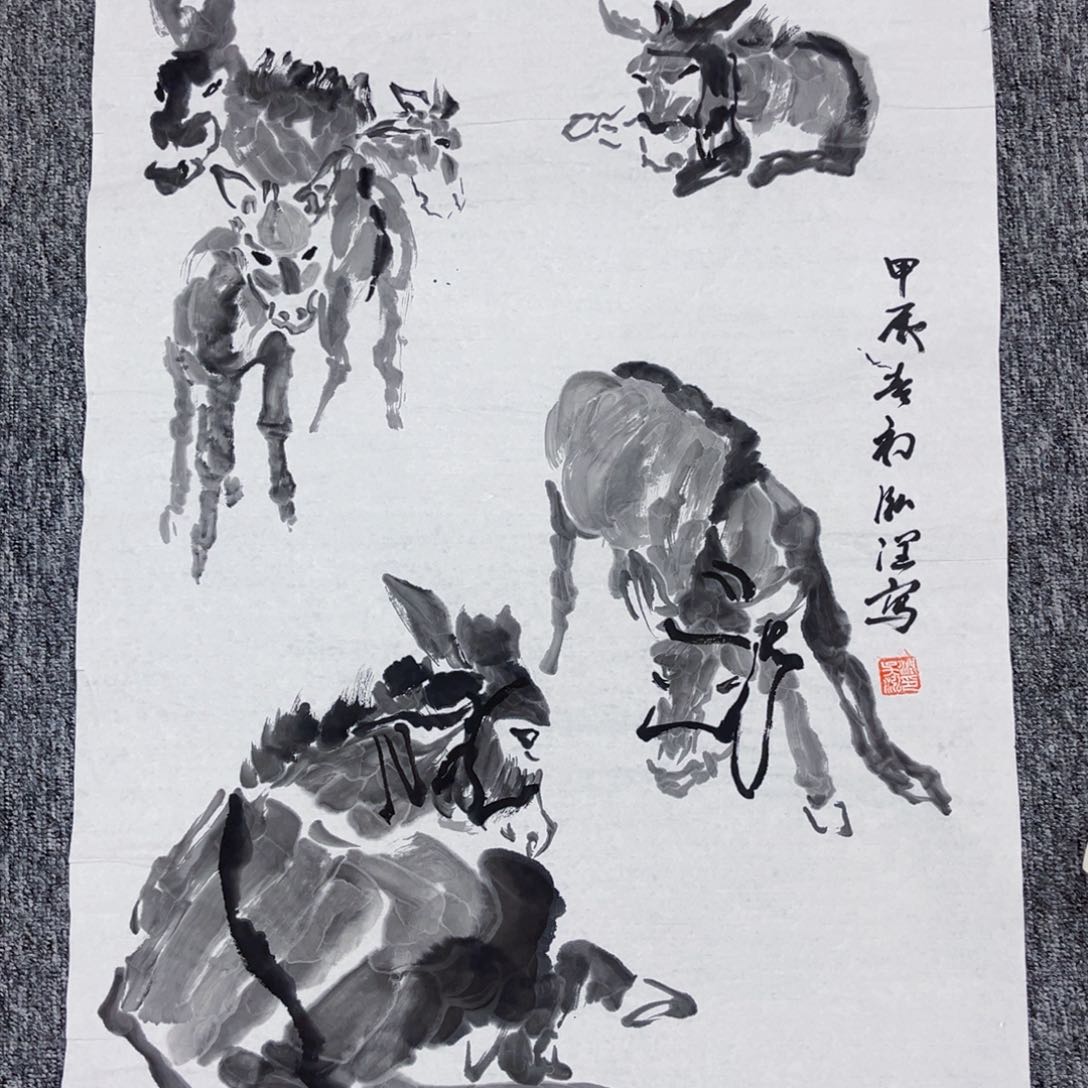 甲辰春初泓涅写